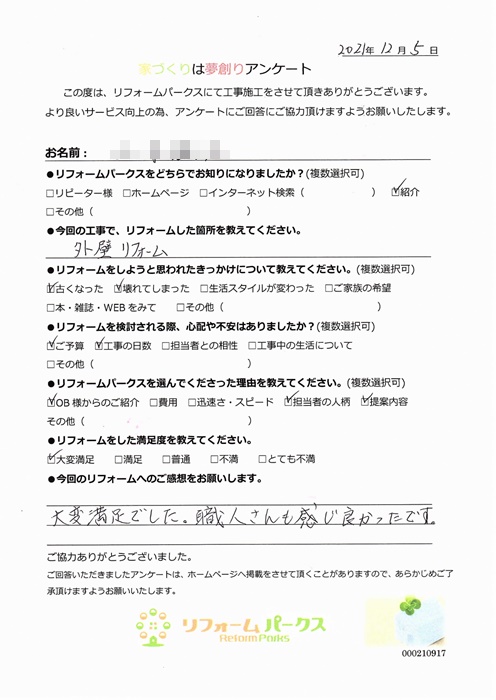 2021年12月5日
家づくりは夢創りアンケート
この度は、リフォームパークスにて工事施工をさせて頂きありがとうございます。
より良いサービス向上の為、アンケートにご回答にご協力頂けますようお願いしたします。
お名前：
●リフォームパークスをどちらでお知りになりましたか？(複数選択可)
□リピーター様 □ホームページ □インターネット検索（ ） ☑紹介
□その他（ ）
●今回の工事で、リフォームした箇所を教えてください。
外壁リフォーム
●リフォームをしようと思われたきっかけについて教えてください。(複数選択可)
☑古くなった ☑壊れてしまった □生活スタイルが変わった □ご家族の希望
□本・雑誌・WEBをみて □その他（ ）
●リフォームを検討される際、心配や不安はありましたか？(複数選択可)
☑ご予算 ☑工事の日数 □担当者との相性 □工事中の生活について
□その他（ ）
●リフォームパークスを選んでくださった理由を教えてください。(複数選択可)
☑OB様からのご紹介 □費用 □迅速さ・スピード ☑担当者の人柄 ☑提案内容
その他（ ）
●リフォームをした満足度を教えてください。
☑大変満足 □満足 □普通 □不満 □とても不満
●今回のリフォームへのご感想をお願いします。
大変満足でした。職人さんも感じ良かったです。
ご協力ありがとうございました。
ご回答いただきましたアンケートは、ホームページへ掲載をさせて頂くことがありますので、あらかじめご了
承頂けますようお願いいたします。
リフォームパークス
Reform Parks
000210917